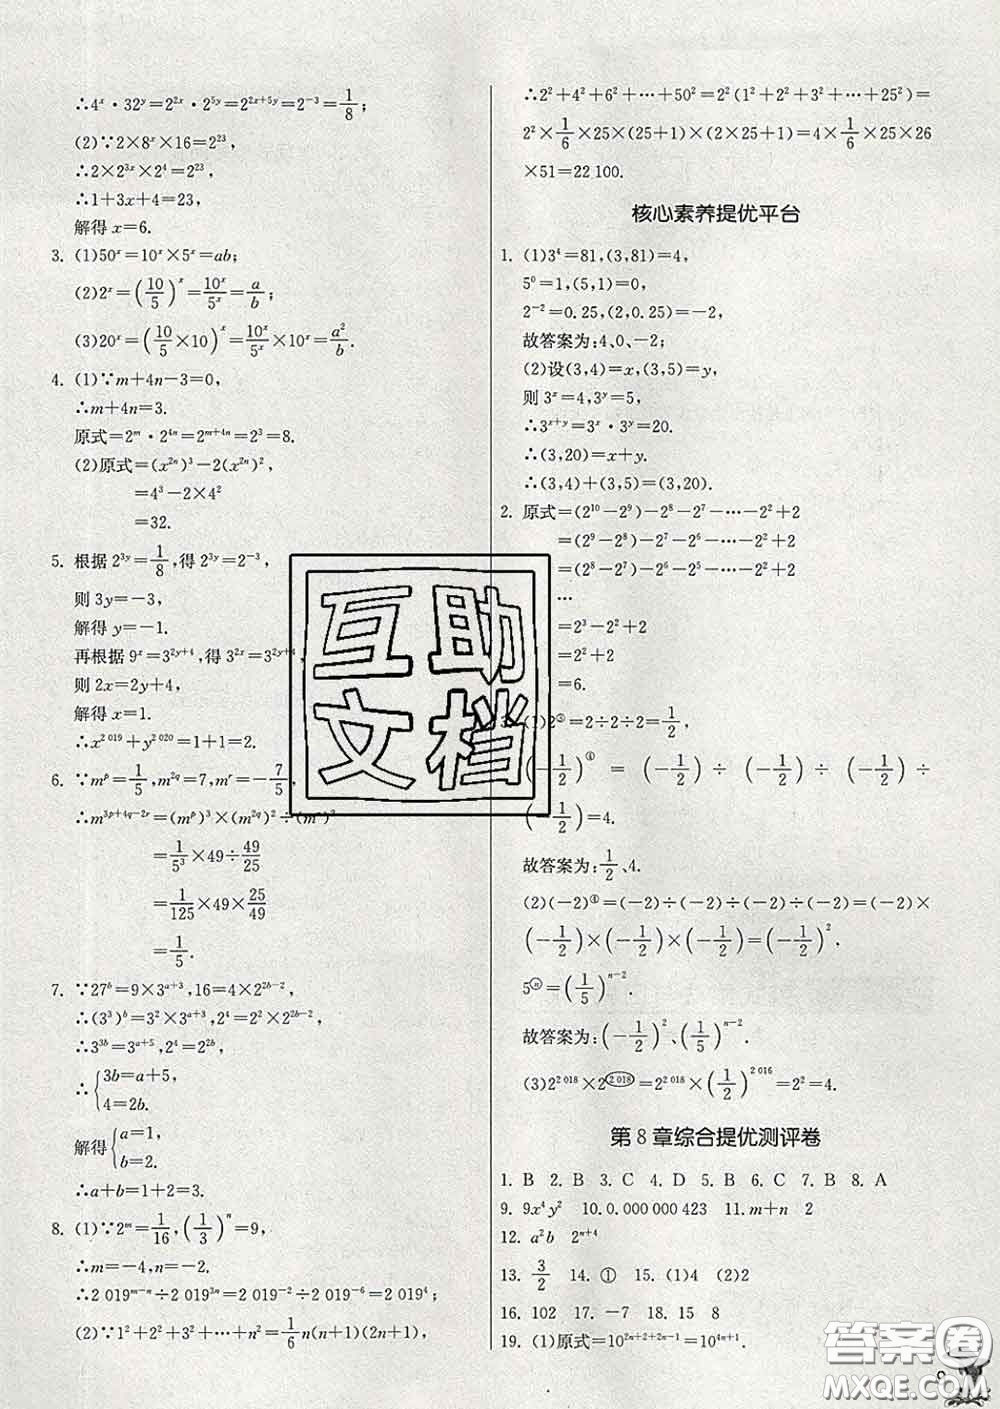 ∴4^x·32^y=2^{2x}·2^{5y}=2^{2x+5y}=2^{-3}=1/8;
(2)∵2×8^x×16=2^{23},
∴2×2^{3x}×2^4=2^{23},
∴1+3x+4=23,
解得 x=6.
3. (1)50^x=10^x×5^x=ab;
(2)2^x=(10/5)^x=10^x/5^x=a/b;
(3)20^x=(10/5×10)^x=10^x/5^x×10^x=a²/b.
4. (1)∵m+4n-3=0,
∴m+4n=3.
原式=2^m·2^{4n}=2^{m+4n}=2³=8.
(2)原式=(x^{2n})³-2(x^{2n})²,
=4³-2×4²
=32.
5. 根据 2^{3y}=1/8,得 2^{3y}=2^{-3},
则 3y=-3,
解得 y=-1.
再根据 9^x=3^{2y+4},得 3^{2x}=3^{2y+4},
则 2x=2y+4,
解得 x=1.
∴x^{2 019}+y^{2 020}=1+1=2.
6. ∵m^p=1/5,m^{2q}=7,m^r=-7/5,
∴m^{3p+4q-2r}=(m^p)³×(m^{2q})²÷(m^r)²
=1/5³×49÷49/25
=1/125×49×25/49
=1/5.
7. ∵27^b=9×3^{a+3},16=4×2^{2b-2},
∴(3³)^b=3²×3^{a+3},2⁴=2²×2^{2b-2},
∴3^{3b}=3^{a+5},2⁴=2^{2b},
∴{3b=a+5,
4=2b.
解得{a=1,
b=2.
∴a+b=1+2=3.
8. (1)∵2^m=1/16,(1/3)^n=9,
∴m=-4,n=-2.
∴2 019^{m-n}÷2 019^{3n}=2 019^{-2}÷2 019^{-6}=2 019⁴;
(2)∵1²+2²+3²+…+n²=1/6n(n+1)(2n+1),
∴2²+4²+6²+…+50²=2²(1²+2²+3²+…+25²)=
2²×1/6×25×(25+1)×(2×25+1)=4×1/6×25×26
×51=22 100.
核心素养提优平台
1. (1)3⁴=81,(3,81)=4,
5⁰=1,(5,1)=0,
2^{-2}=0.25,(2,0.25)=-2,
故答案为:4、0、-2;
(2)设(3,4)=x,(3,5)=y,
则 3^x=4,3^y=5,
∴3^{x+y}=3^x·3^y=20.
∴(3,20)=x+y.
∴(3,4)+(3,5)=(3,20).
2. 原式=(2^{10}-2⁹)-2⁸-2⁷-…-2²+2
=(2⁹-2⁸)-2⁷-2⁶-…-2²+2
=(2⁸-2⁷)-2⁶-2⁵-…-2²+2
…
=2³-2²+2
=2²+2
=6.
3. (1)2^③=2÷2÷2=1/2,
(-1/2)^④ = (-1/2) ÷ (-1/2) ÷ (-1/2) ÷
(-1/2)=4.
故答案为:1/2、4.
(2)(-2)^④=(-2)÷(-2)÷(-2)÷(-2)=(-2)×
(-1/2)×(-1/2)×(-1/2)=(-1/2)²,
5^ⓝ=(1/5)^{n-2}.
故答案为:(-1/2)²、(1/5)^{n-2}.
(3)2^{2 018}×2^{(2 018)}=2^{2 018}×(1/2)^{2 016}=2²=4.
第 8 章综合提优测评卷
1. B 2. B 3. C 4. D 5. B 6. C 7. B 8. A
9. 9x⁴y² 10. 0.000 000 423 11. m+n 2
12. a²b 2^{n+4}
13. 3/2 14. ① 15. (1)4 (2)2
16. 102 17. -7 18. 15 8
19. (1)原式=10^{2n+2+2n-1}=10^{4n+1}.
互助
文档
答案圈
MXQE.COM